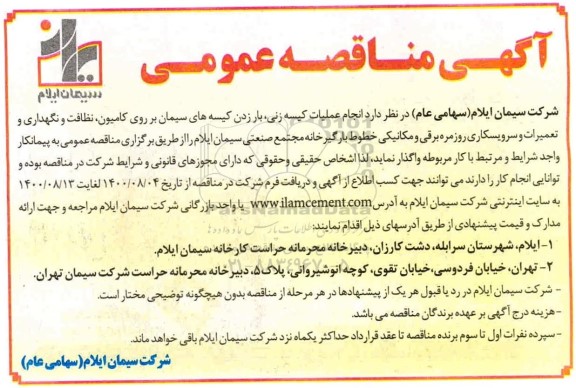 آگهی مناقصه عمومی
سیمان ایلام
شرکت سیمان ایلام(سهامی عام) در نظر دارد انجام عملیات کیسه زنی، بار زدن کیسه های سیمان بر روی کامیون، نظافت و نگهداری و
تعمیرات و سرویسکاری روزمره برقی و مکانیکی خطوط بارگیرخانه مجتمع صنعتی سیمان ایلام را از طریق برگزاری مناقصه عمومی به پیمانکار
واجد شرایط و مرتبط با کار مربوطه واگذار نماید، لذا اشخاص حقیقی و حقوقی که دارای مجوزهای قانونی و شرایط شرکت در مناقصه بوده و
توانایی انجام کار را دارند می توانند جهت کسب اطلاع از آگهی و دریافت فرم شرکت در مناقصه از تاریخ ۱۴۰۰/۰۸/۰۴ لغایت ۱۴۰۰/۰۸/۱۳
به سایت اینترنتی شرکت سیمان ایلام به آدرس www.ilamcement.com یا واحد بازرگانی شرکت سیمان ایلام مراجعه و جهت ارائه
مدارک و قیمت پیشنهادی از طریق آدرسهای ذیل اقدام نمایند:
۱- ایلام، شهرستان سرابله، دشت کارزان، دبیرخانه محرمانه حراست کارخانه سیمان ایلام.
۲- تهران، خیابان فردوسی، خیابان تقوی، کوچه انوشیروانی، پلاک۵، دبیرخانه محرمانه حراست شرکت سیمان تهران.
- شرکت سیمان ایلام در رد یا قبول هر یک از پیشنهادها در هر مرحله از مناقصه بدون هیچگونه توضیحی مختار است.
- هزینه درج آگهی بر عهده برندگان مناقصه می باشد.
- سپرده نفرات اول تا سوم برنده مناقصه تا عقد قرارداد حداکثر یکماه نزد شرکت سیمان ایلام باقی خواهد ماند.
شرکت سیمان ایلام(سهامی عام)